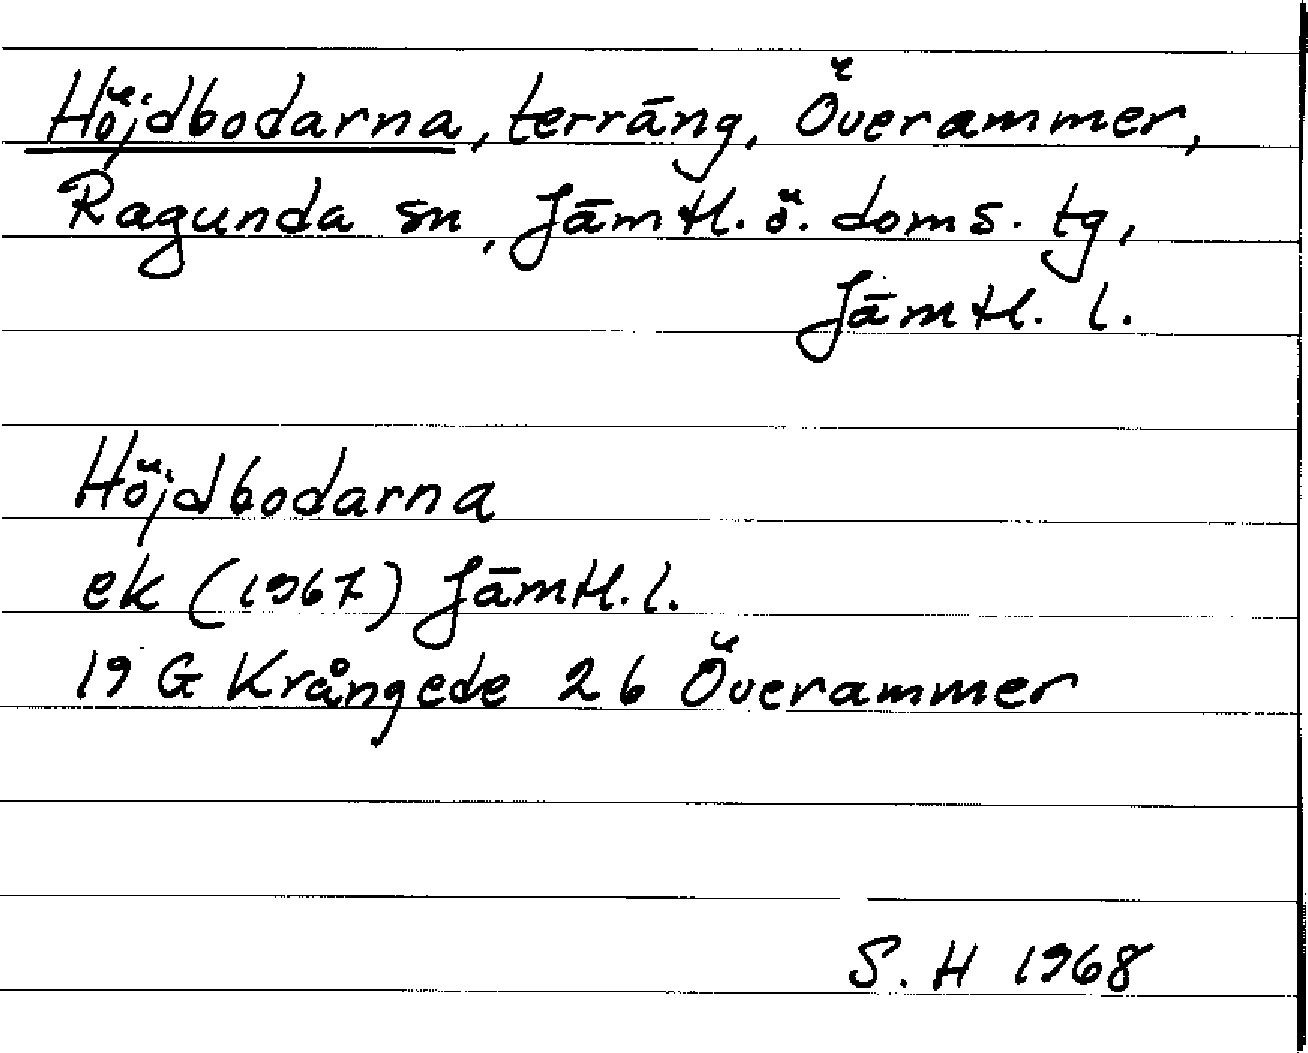 Höjdbodarna, terräng, Överammer,
Ragunda sn, Jämtl. ö. doms. tg,
Jämtl. l.
Höjdbodarna
ek (1967) Jämtl. l.
19 G Krångede 2 b Överammer
S. H 1968